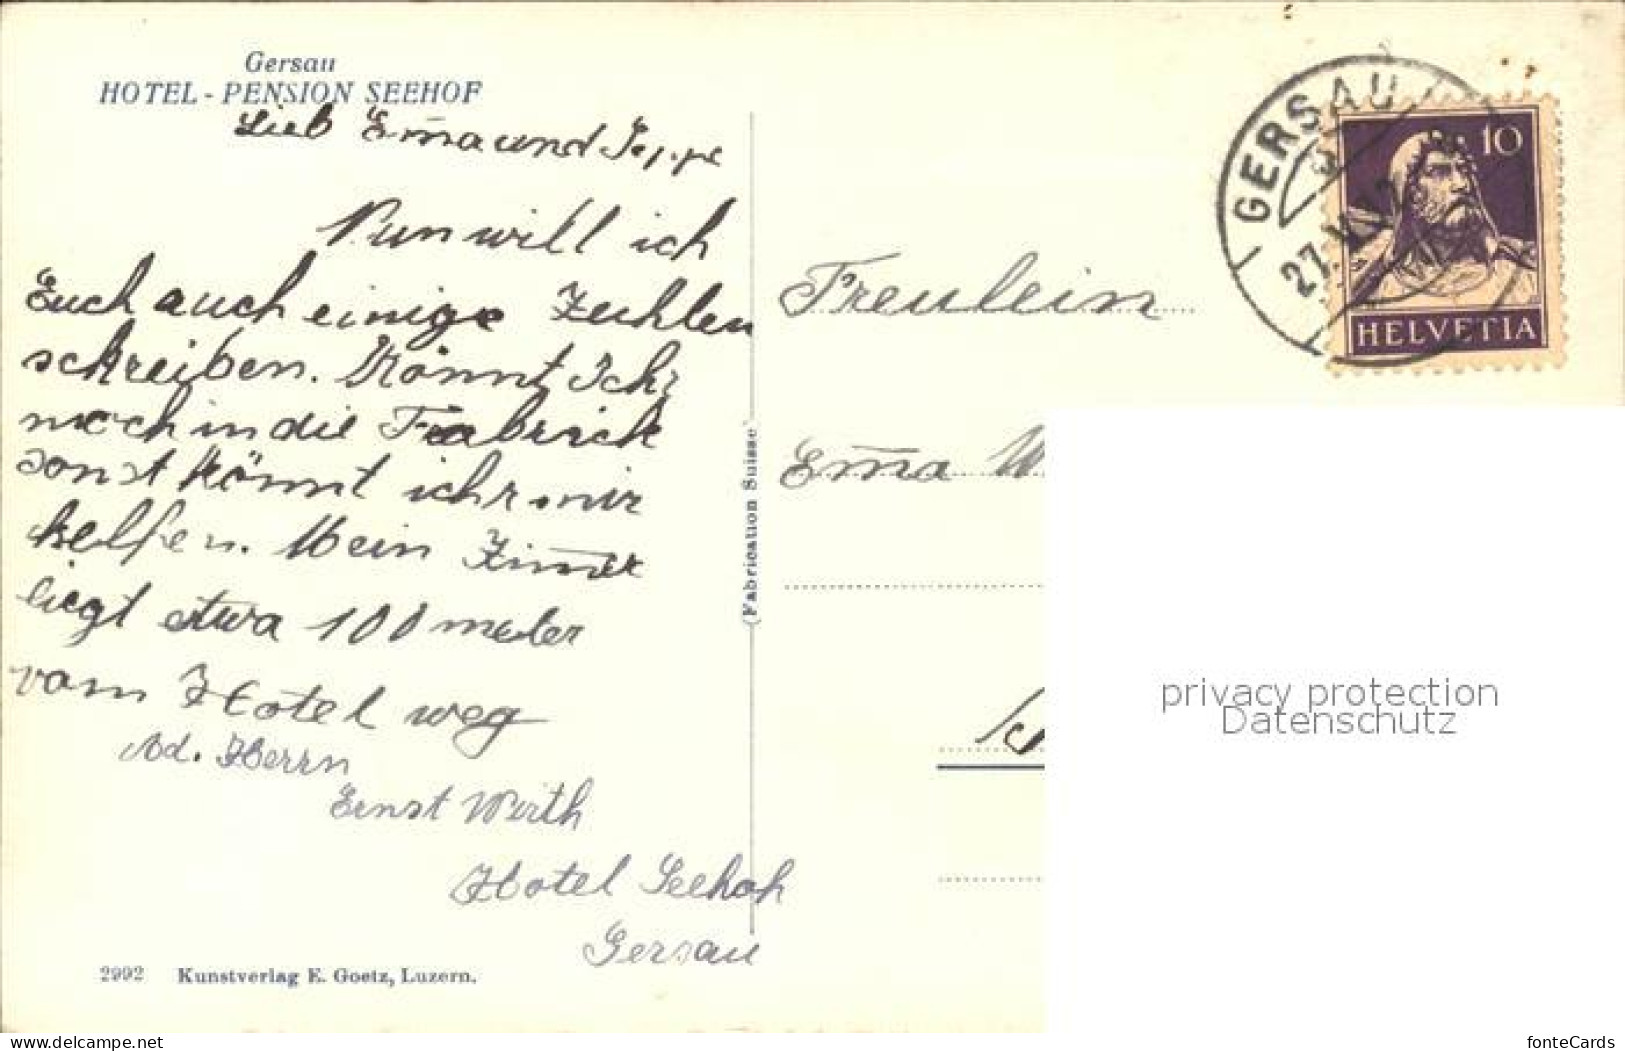 Gersau
HOTEL - PENSION SEEHOF
Lieb Em̅a und Seppe
Nun will ich
Euch auch einige Zeihlen
schreiben. Könnt Ichr
noch in die Frabrick
sonst könnt ichr mir
helfen. Mein Zim̅er
liegt etwa 100 meter
vom Hotel weg
Ad. Herrn
Ernst Wirth
Hotel Seehof
Gersau
2992 Kunstverlag E. Goetz, Luzern.
(Fabrication Suisse)
GERSAU
27.
10
HELVETIA
Freulein
Em̅a W
privacy protection
Datenschutz
www.delcampe.net
fonteCards